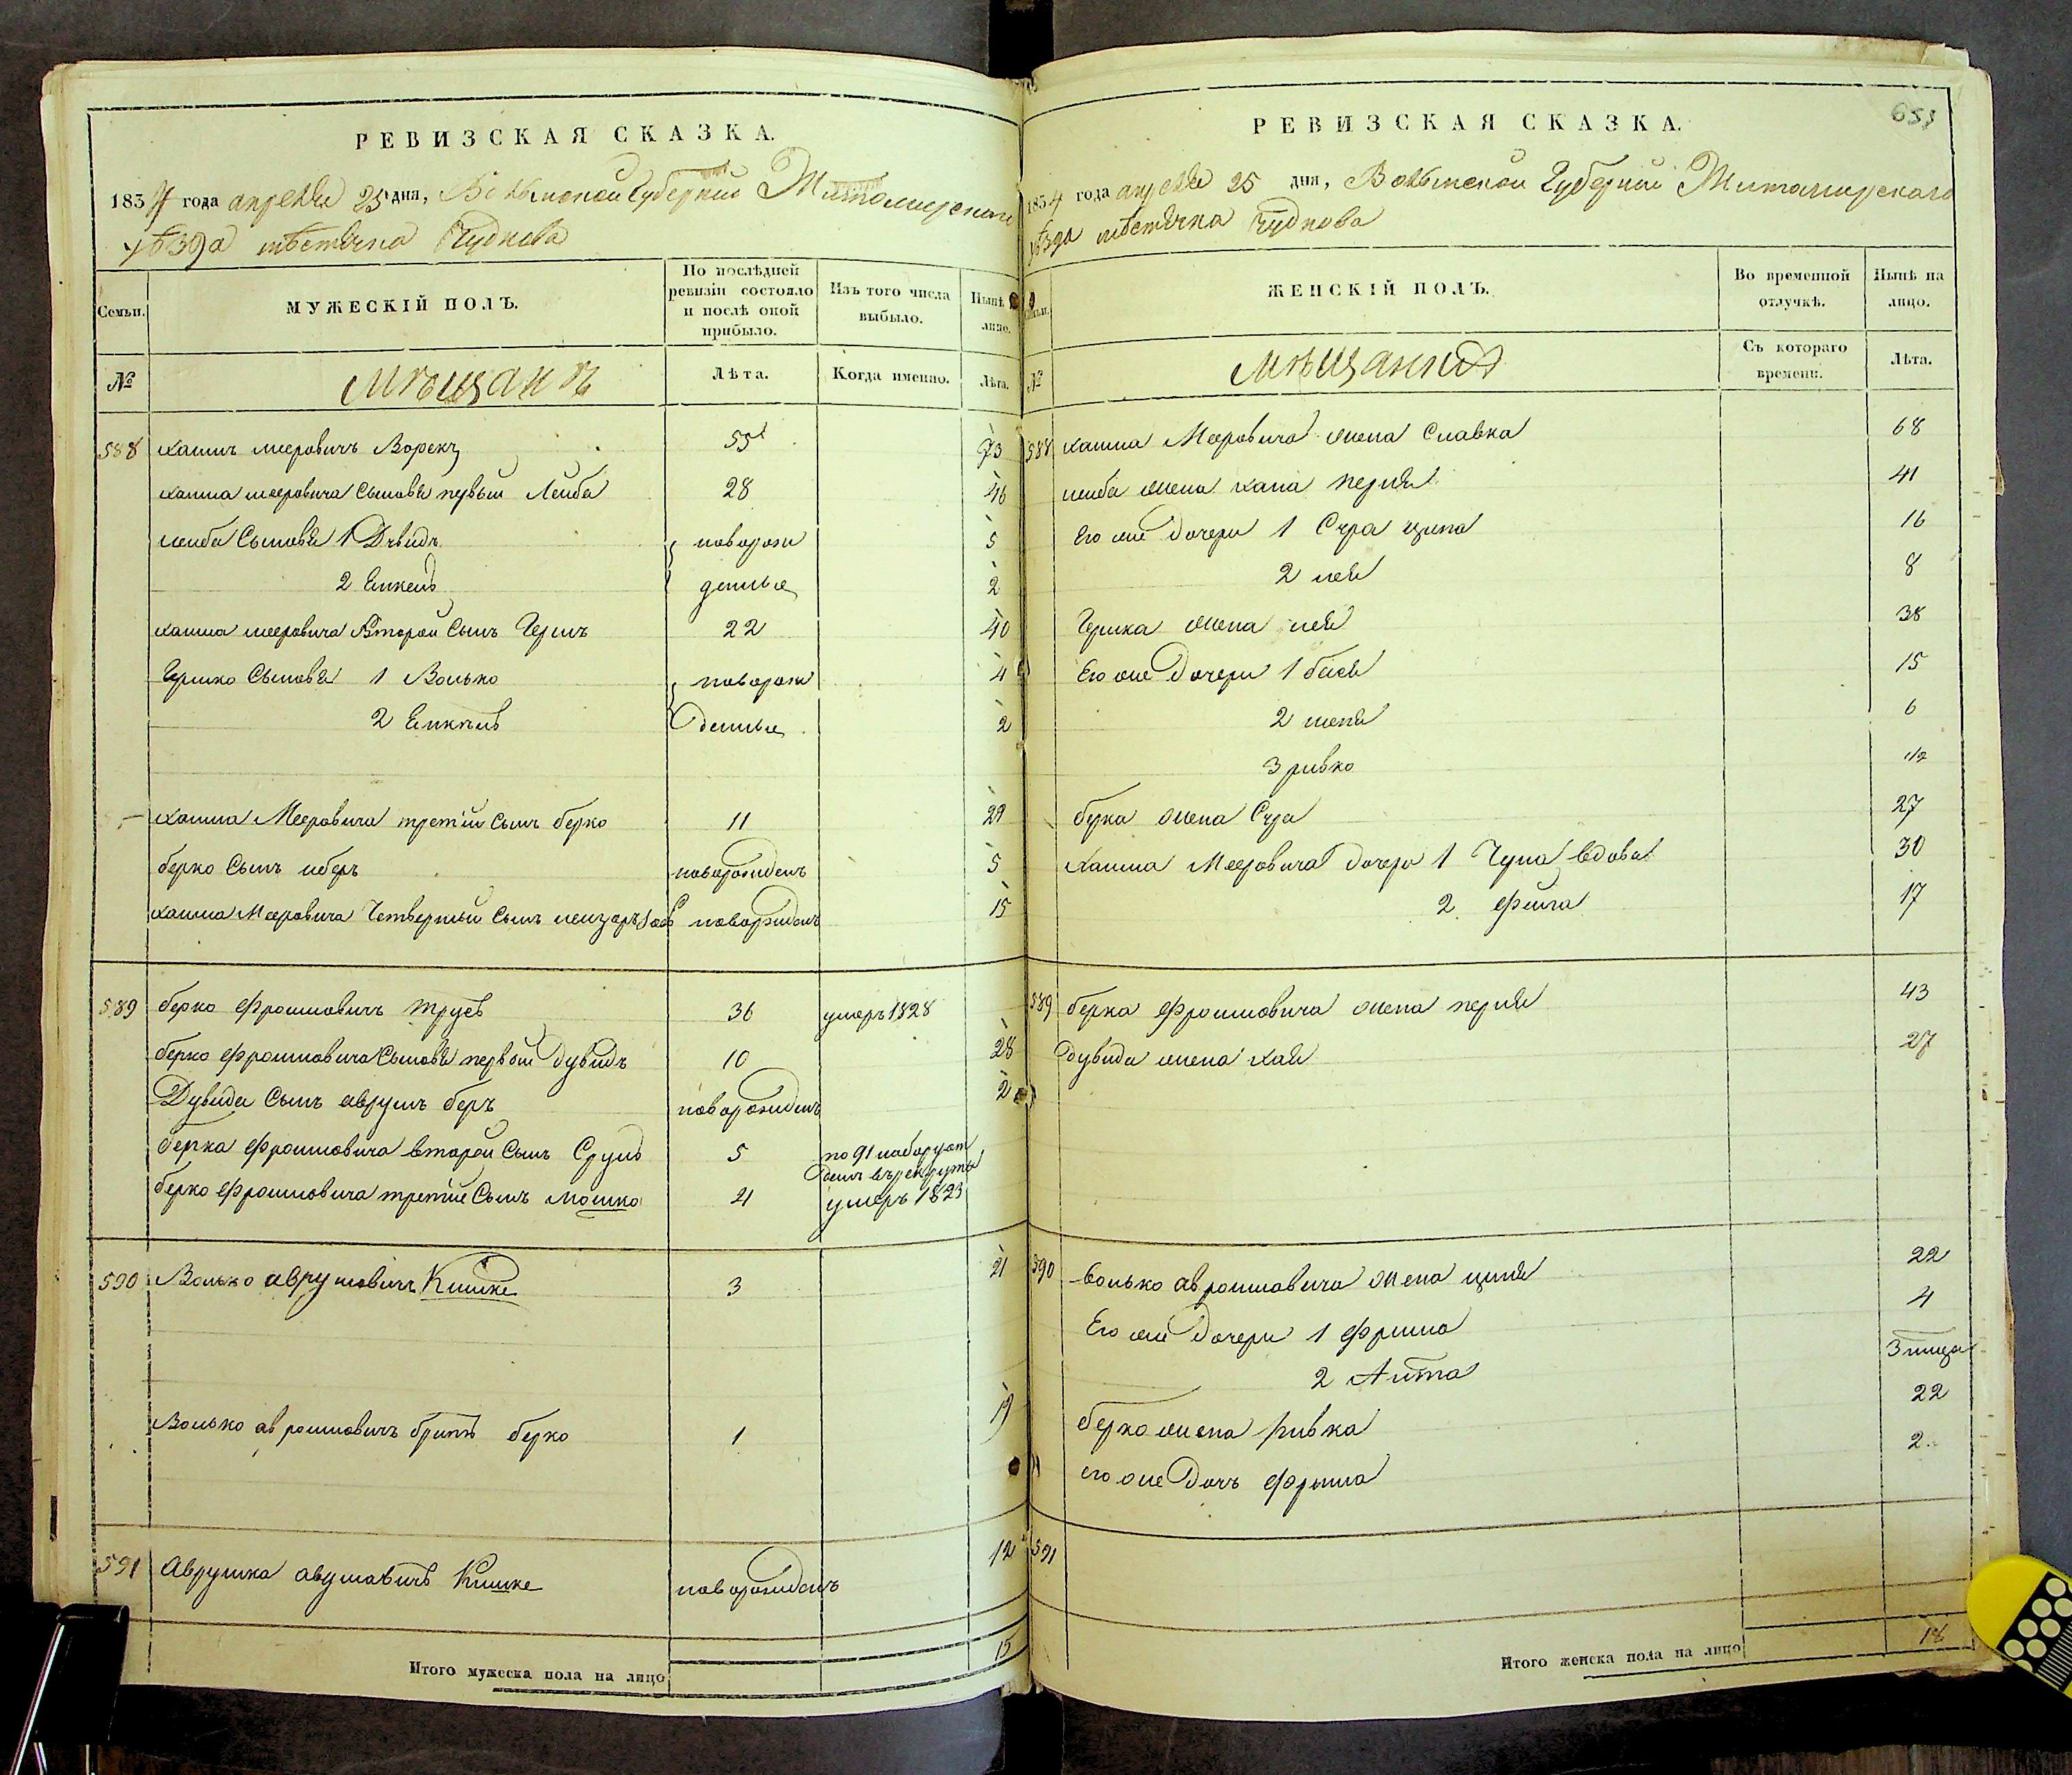 РЕВИЗСКАЯ СКАЗКА.
1834 года апреля 25 дня, Волынской Губерніи Житомирскаго
уѣзда мѣстечка Чуднова
Семьи.
МУЖЕСКІЙ ПОЛЪ.
По послѣдней ревизіи состояло и послѣ оной прибыло.
Изъ того числа выбыло.
Нынѣ лицо.
№
мѣщанъ
Лѣта.
Когда именно.
Лѣта.
588 хаимъ мееровичъ 55 73
хаима мееровича Сыновья первый Лейба 28 46
лейба Сыновья 1 Дувидъ новорож 5
2 денные 2
хаима мееровича Второй Сынъ Гершъ 22 40
Гершко Сыновья 1 Волько новорож 4
2 денные 2
хаима Мееровича третій Сынъ берко 11 29
берко Сынъ новорожденъ 5
хаима Мееровича Четвертый Сынъ новорожденъ 15
589 берко Фроимовичъ 36 умеръ 1828
берко Фроимовича Сыновья первый Дувидъ 10 28
Дувида Сынъ аврумъ беръ новорожденъ 2
берка Фроимовича второй Сынъ Сруль 5 по 91 набору от
данъ въ рекруты
берко Фроимовича третій Сынъ мошко 4 умеръ 1823
590 Волько аврумовичъ Кишке 3 21
Волько авроимовичъ братъ берко 1 19
591 Аврумка Кишке новорожденъ 12
Итого мужеска пола на лицо 15
РЕВИЗСКАЯ СКАЗКА.
1834 года апреля 25 дня, Волынской Губерніи Житомирскаго
уѣзда мѣстечка Чуднова
ЖЕНСКІЙ ПОЛЪ.
Во временной отлучкѣ.
Нынѣ на лицо.
№
Съ котораго времени.
Лѣта.
588 хаима Мееровича жена Славка 68
лейба жена хана перля 41
Его же Дочери 1 Сура ципа 16
2 лея 8
Гершка жена лея 38
Его же Дочери 1 бася 15
2 6
3 ривко 1/2
берка жена Сура 27
Хаима Мееровича Дочери 1 вдова 30
2 Фейга 17
589 берка Фроимовича жена перля 43
Дувида жена хая 27
590 волько авроимовича жена ципя 22
Его же Дочери 1 Фрима 4
2 3 мица
берко жена ривка 22
его же Дочь Фрыма 2
591
Итого женска пола на лицо 18